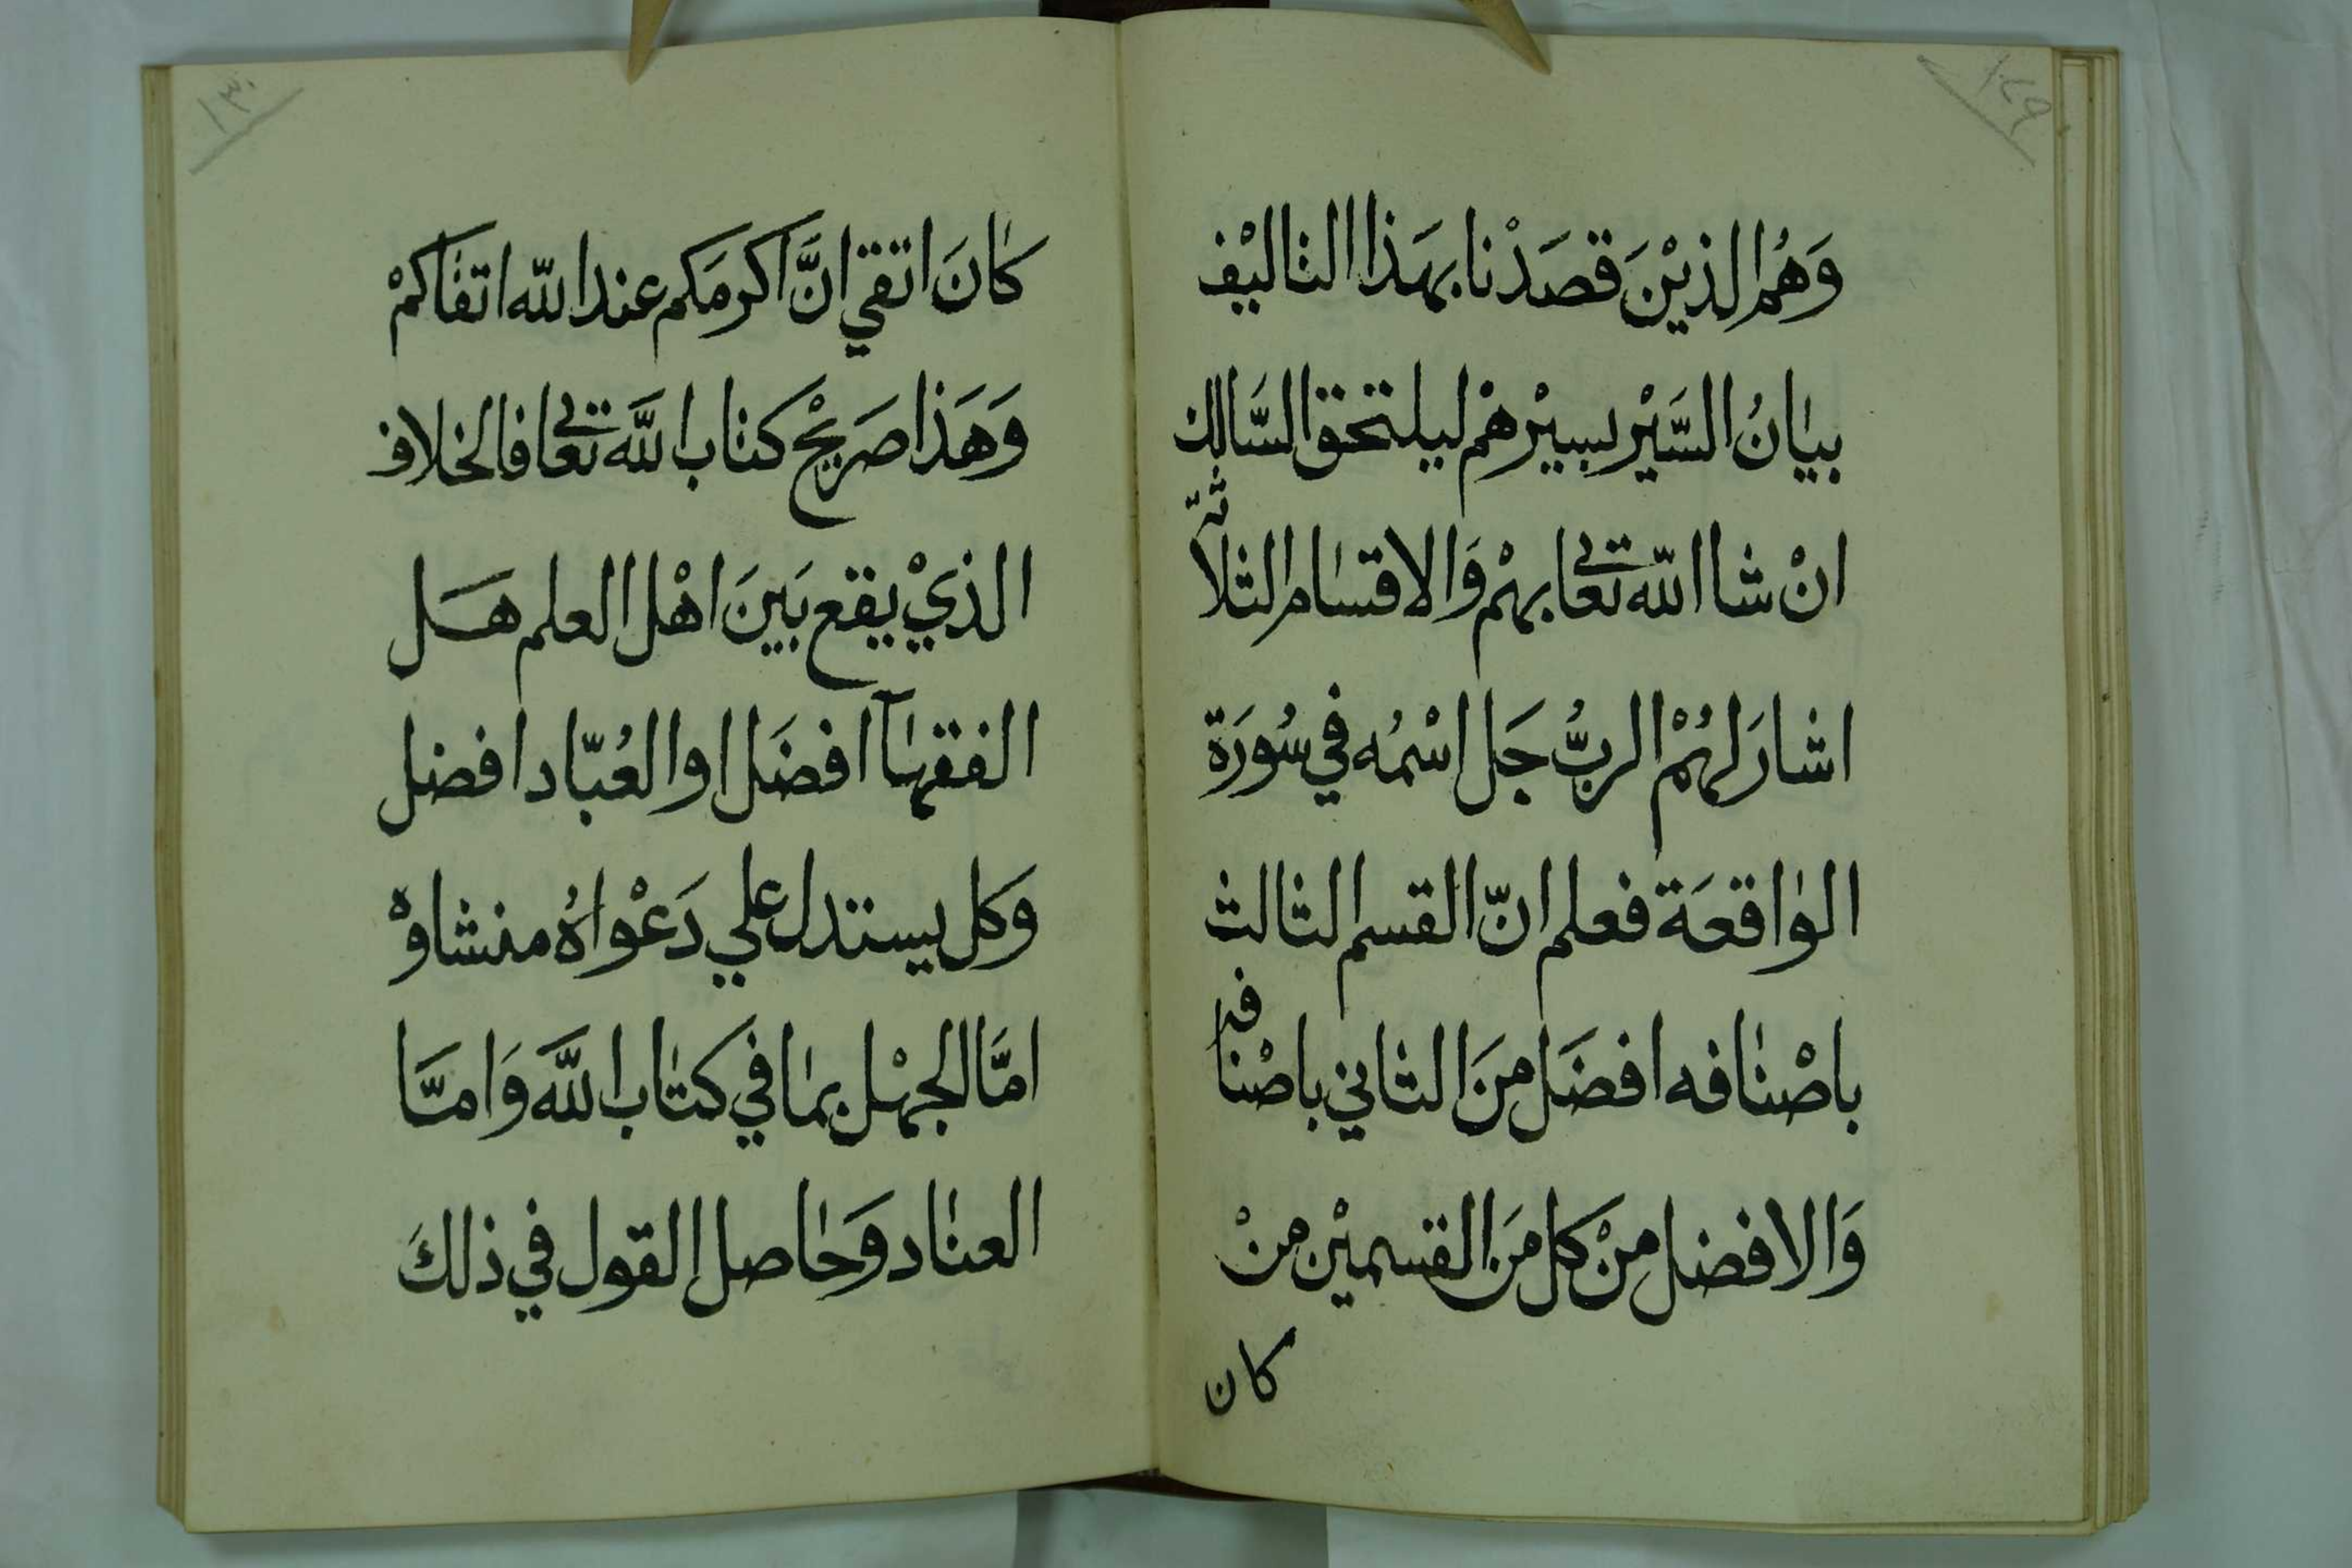 ١٢٩
وَهُم الذيْنَ قصَدْنا بهَذا التاليْف
بيانُ السَّيْر بسيْرهمْ ليلتحق السَّالك
انْ شا الله تعالى بهمْ وَالاقسام الثلاثة
اشارَ لهُمْ الربُّ جَل اسْمُه في سُورَة
الواقعَة فعلم انّ القسم الثالث
باصْنافه افضَل منَ الثاني باصْنافه
وَالافضل منْ كل منَ القسميْن منْ
كان
١٣٠
كانَ اتقي انَّ اكرمَكم عند الله اتقاكمْ
وَهَذا صَريْح كتاب اللَّه تعالى فالخلاف
الذيْ يقع بَينَ اهْل العلم هَل
الفقهآ افضَل او العُبّاد افضل
وَكل يستدل علي دَعْواهُ منشاوهْ
امَّا الجهْل بما في كتاب اللَّه وَامَّا
العناد وَحاصل القول في ذلكَ